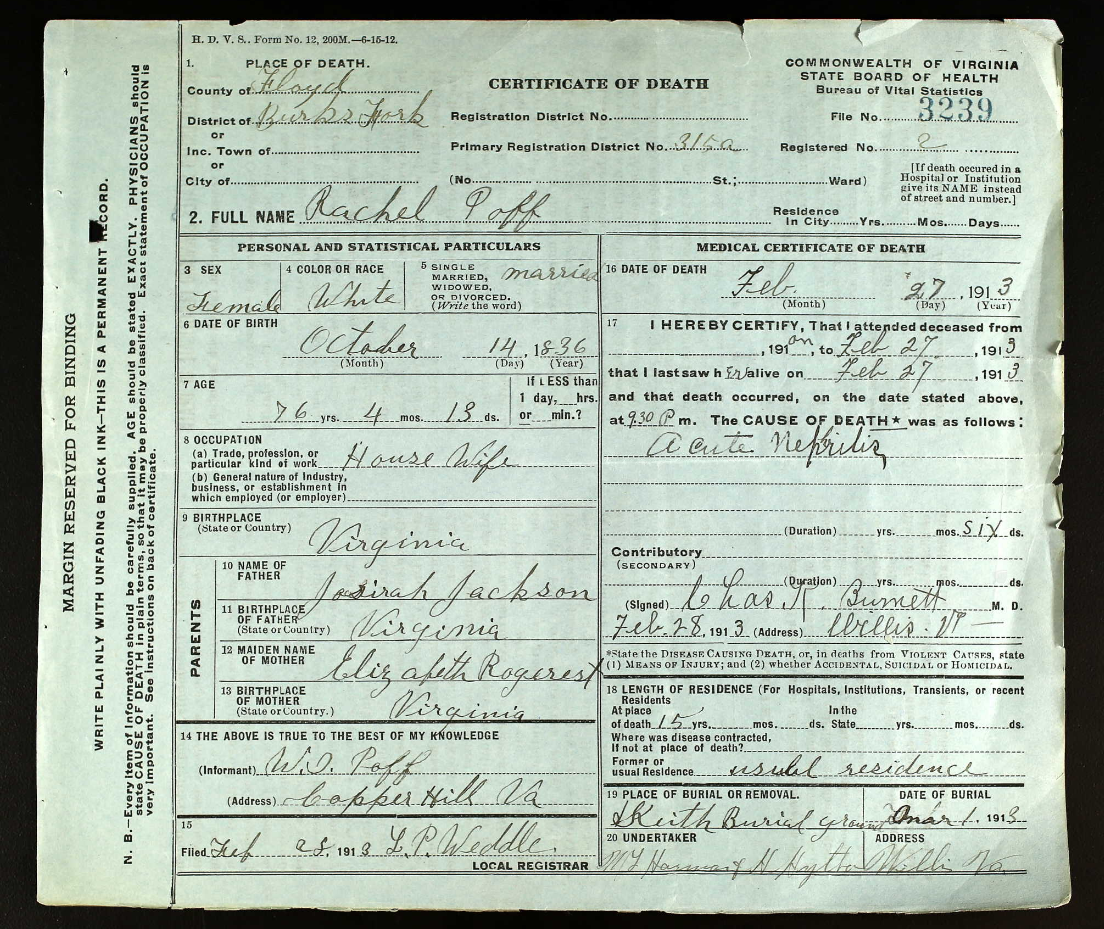 H. D. V. S.. Form No. 12, 200M.—6-15-12.
1. PLACE OF DEATH.
County of Floyd
District of Burks Fork
or
Inc. Town of
or
City of
CERTIFICATE OF DEATH
Registration District No.
Primary Registration District No. 315a
(No. St.; Ward)
COMMONWEALTH OF VIRGINIA
STATE BOARD OF HEALTH
Bureau of Vital Statistics
File No. 3239
Registered No. 2
[If death occured in a
Hospital or Institution
give its NAME instead
of street and number.]
2. FULL NAME Rachel Poff
Residence
In City Yrs. Mos. Days
PERSONAL AND STATISTICAL PARTICULARS
3 SEX
Female
4 COLOR OR RACE
White
5 SINGLE
MARRIED,
WIDOWED,
OR DIVORCED.
(Write the word)
married
6 DATE OF BIRTH
October 14, 1836
(Month) (Day) (Year)
7 AGE
76 yrs. 4 mos. 13 ds.
If LESS than
1 day, hrs.
or min.?
8 OCCUPATION
(a) Trade, profession, or
particular kind of work House Wife
(b) General nature of Industry,
business, or establishment in
which employed (or employer)
9 BIRTHPLACE
(State or Country)
Virginia
PARENTS
10 NAME OF
FATHER
Josirah Jackson
11 BIRTHPLACE
OF FATHER
(State or Country)
Virginia
12 MAIDEN NAME
OF MOTHER
Elizabeth
13 BIRTHPLACE
OF MOTHER
(State or Country.)
Virginia
14 THE ABOVE IS TRUE TO THE BEST OF MY KNOWLEDGE
(Informant) Poff
(Address) Copper Hill Va
15
Filed Feb 28, 1913 L. P. Weddle
LOCAL REGISTRAR
MEDICAL CERTIFICATE OF DEATH
16 DATE OF DEATH
Feb. 27, 1913
(Month) (Day) (Year)
17 I HEREBY CERTIFY, That I attended deceased from
, 191 on, to Feb 27, 1913
that I last saw h er alive on Feb 27, 1913
and that death occurred, on the date stated above,
at 9.30 P m. The CAUSE OF DEATH* was as follows:
Acute Nephritis
(Duration) yrs. mos. six ds.
Contributory
(SECONDARY)
(Duration) yrs. mos. ds.
(Signed) Chas. R. Burnett M. D.
Feb. 28, 1913 (Address) Willis
*State the DISEASE CAUSING DEATH, or, in deaths from VIOLENT CAUSES, state
(1) MEANS OF INJURY; and (2) whether ACCIDENTAL, SUICIDAL or HOMICIDAL.
18 LENGTH OF RESIDENCE (For Hospitals, Institutions, Transients, or recent
Residents
At place In the
of death 15 yrs. mos. ds. State yrs. mos. ds.
Where was disease contracted,
If not at place of death?
Former or
usual Residence usual residence
19 PLACE OF BURIAL OR REMOVAL.
Keith Burial ground
DATE OF BURIAL
Mar 1. 1913
20 UNDERTAKER
Harman & H Hylton
ADDRESS
Willis Va
MARGIN RESERVED FOR BINDING
WRITE PLAINLY WITH UNFADING BLACK INK—THIS IS A PERMANENT RECORD.
N. B.—Every item of Information should be carefully supplied. AGE should be stated EXACTLY. PHYSICIANS should
state CAUSE OF DEATH in plain terms, so that it may be properly classified. Exact statement of OCCUPATION is
very important. See instructions on back of certificate.